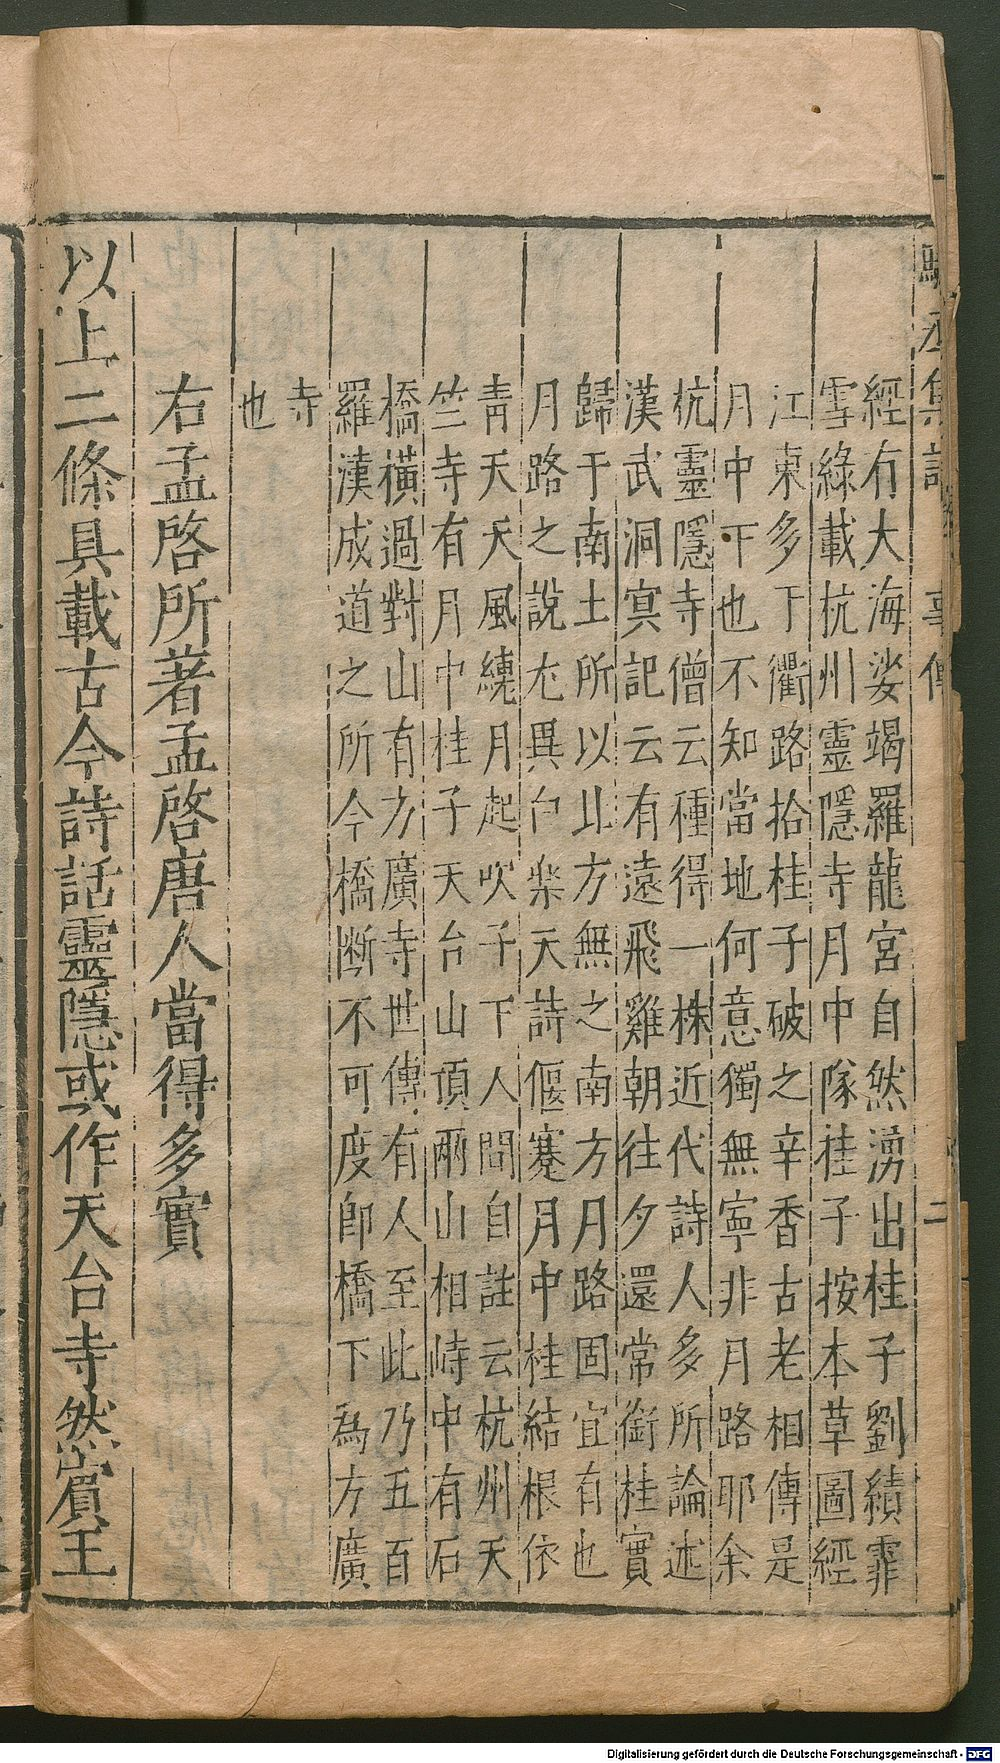 經有大海娑竭羅龍宮自然湧出桂子劉績霏
雪綠載杭州靈隱寺月中隊桂子按本草圖經
江東多下衢路拾桂子破之辛香古老相傳是
月中下也不知當地何意獨無寧非月路耶余
杭靈隱寺僧云種得一株近代詩人多所論述
漢武洞冥記云有遠飛雞朝往夕還常銜桂實
歸于南土所以北方無之南方月路固宜有也
月路之說尤異白樂天詩偃蹇月中桂結根依
青天天風繞月起吹子下人間自註云杭州天
竺寺有月中桂子天台山頂兩山相峙中有石
橋橫過對山有方廣寺世傳有人至此乃五百
羅漢成道之所今橋斷不可度即橋下為方廣
寺
也
右孟啓所著孟啓唐人當得多實
以上二條具載古今詩話靈隱或作天台寺然賔王
二
Digitalisierung gefördert durch die Deutsche Forschungsgemeinschaft - DFG